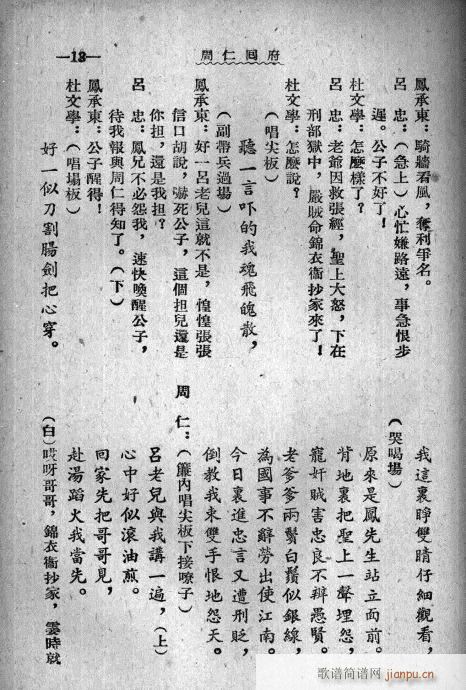 周仁回府
—13—
鳳承東：騎牆看風，奪利爭名。
呂　忠：（急上）心忙嫌路遠，事急恨步
遲。公子不好了！
杜文學：怎麼樣了？
呂　忠：老爺因救張經，聖上大怒，下在
刑部獄中，嚴賊命錦衣衞抄家來了！
杜文學：怎麼說？
（唱尖板）
聽一言吓的我魂飛魄散，
（副帶兵過場）
鳳承東：好一呂老兒這就不是，惶惶張張
信口胡說，嚇死公子，這個担兒還是
你担，還是我担？
呂　忠：鳳兄不必怨我，速快喚醒公子，
待我報與周仁得知了。（下）
鳳承東：公子醒得！
杜文學：（唱塲板）
好一似刀割腸劍把心穿。
我這裏睜雙睛仔細觀看，
（哭喝場）
原來是鳳先生站立面前。
背地裏把聖上一聲埋怨，
寵奸賊害忠良不辨愚賢。
老爹爹兩鬢白鬚似銀線，
為國事不辭勞出使江南。
今日裏進忠言又遭刑貶，
倒教我束雙手恨地怨天。
周　仁：（簾內唱尖板下接嘹子）
呂老兒與我講一遍，（上）
心中好似滾油煎。
回家先把哥哥見，
赴湯蹈火我當先。
（白）哎呀哥哥，錦衣衞抄家，霎時就
歌谱简谱网
jianpu.cn